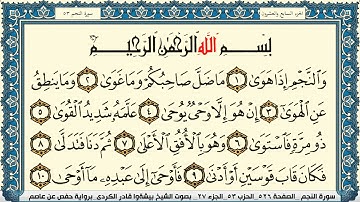 الجزء السابع والعشرون سورة النجم ٥٣
بِسْمِ اللَّهِ الرَّحْمَٰنِ الرَّحِيمِ
وَالنَّجْمِ إِذَا هَوَىٰ ١ مَا ضَلَّ صَاحِبُكُمْ وَمَا غَوَىٰ ٢ وَمَا يَنطِقُ
عَنِ الْهَوَىٰ ٣ إِنْ هُوَ إِلَّا وَحْيٌ يُوحَىٰ ٤ عَلَّمَهُ شَدِيدُ الْقُوَىٰ ٥
ذُو مِرَّةٍ فَاسْتَوَىٰ ٦ وَهُوَ بِالْأُفُقِ الْأَعْلَىٰ ٧ ثُمَّ دَنَا فَتَدَلَّىٰ ٨
فَكَانَ قَابَ قَوْسَيْنِ أَوْ أَدْنَىٰ ٩ فَأَوْحَىٰ إِلَىٰ عَبْدِهِ مَا أَوْحَىٰ ١٠
سورة النجم الصفحة ٥٢٦ الحزب ٥٣ الجزء ٢٧ بصوت الشيخ بيشةوا قادر الكردي برواية حفص عن عاصم